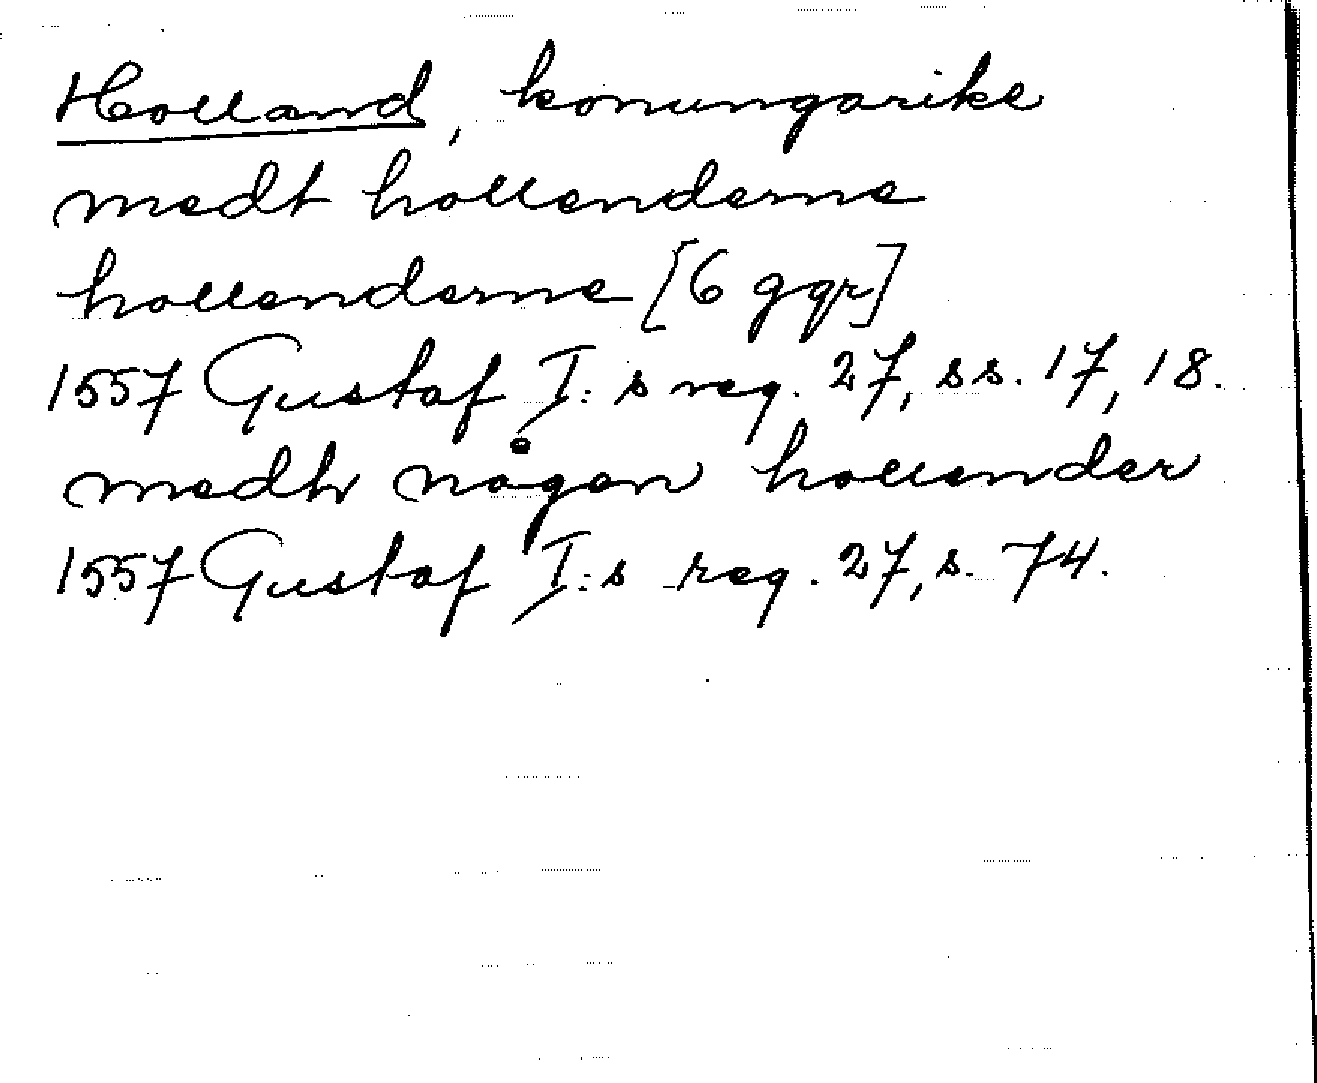 Holland, konungarike
medt hollenderne
hollenderne [6 ggr]
1557 Gustaf I:s reg. 27, ss. 17, 18.
medh någen hollender
1557 Gustaf I:s reg. 27, s. 74.